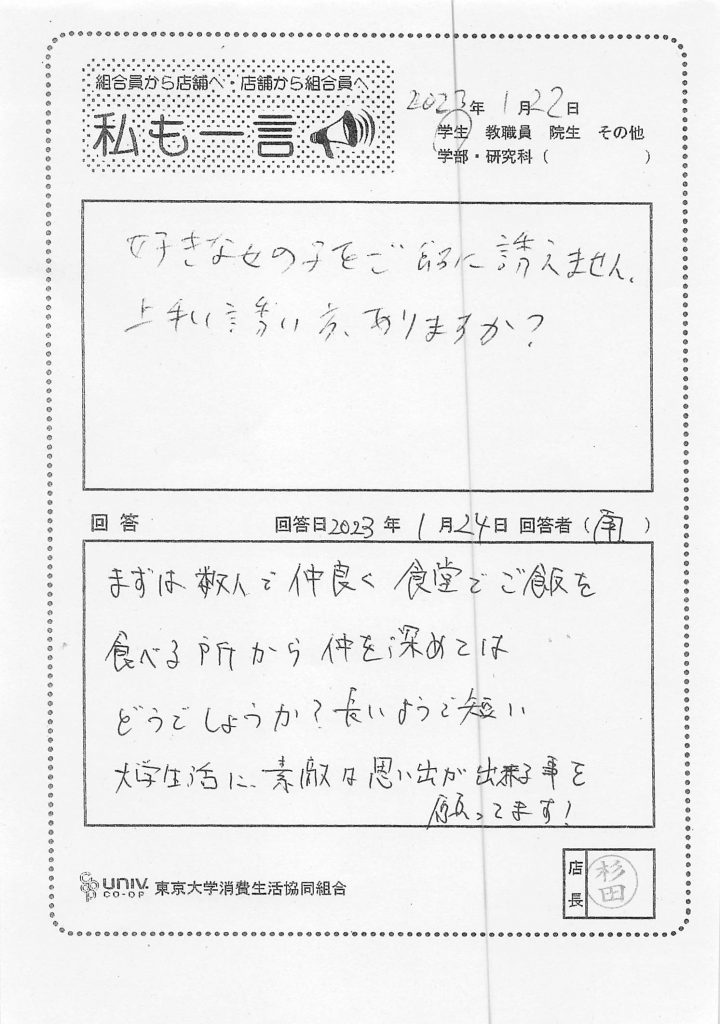 組合員から店舗へ・店舗から組合員へ
私も一言
2023年 1月22日
学生 教職員 院生 その他
学部・研究科( )
好きな女の子をご飯に誘えません。
上手い誘い方、ありますか?
回答 回答日2023年 1月24日 回答者( )
まずは数人で仲良く食堂でご飯を
食べる所から仲を深めては
どうでしょうか?長いようで短い
大学生活に、素敵な思い出が出来る事を
願ってます!
UNIV.
CO-OP
東京大学消費生活協同組合
店長
杉田